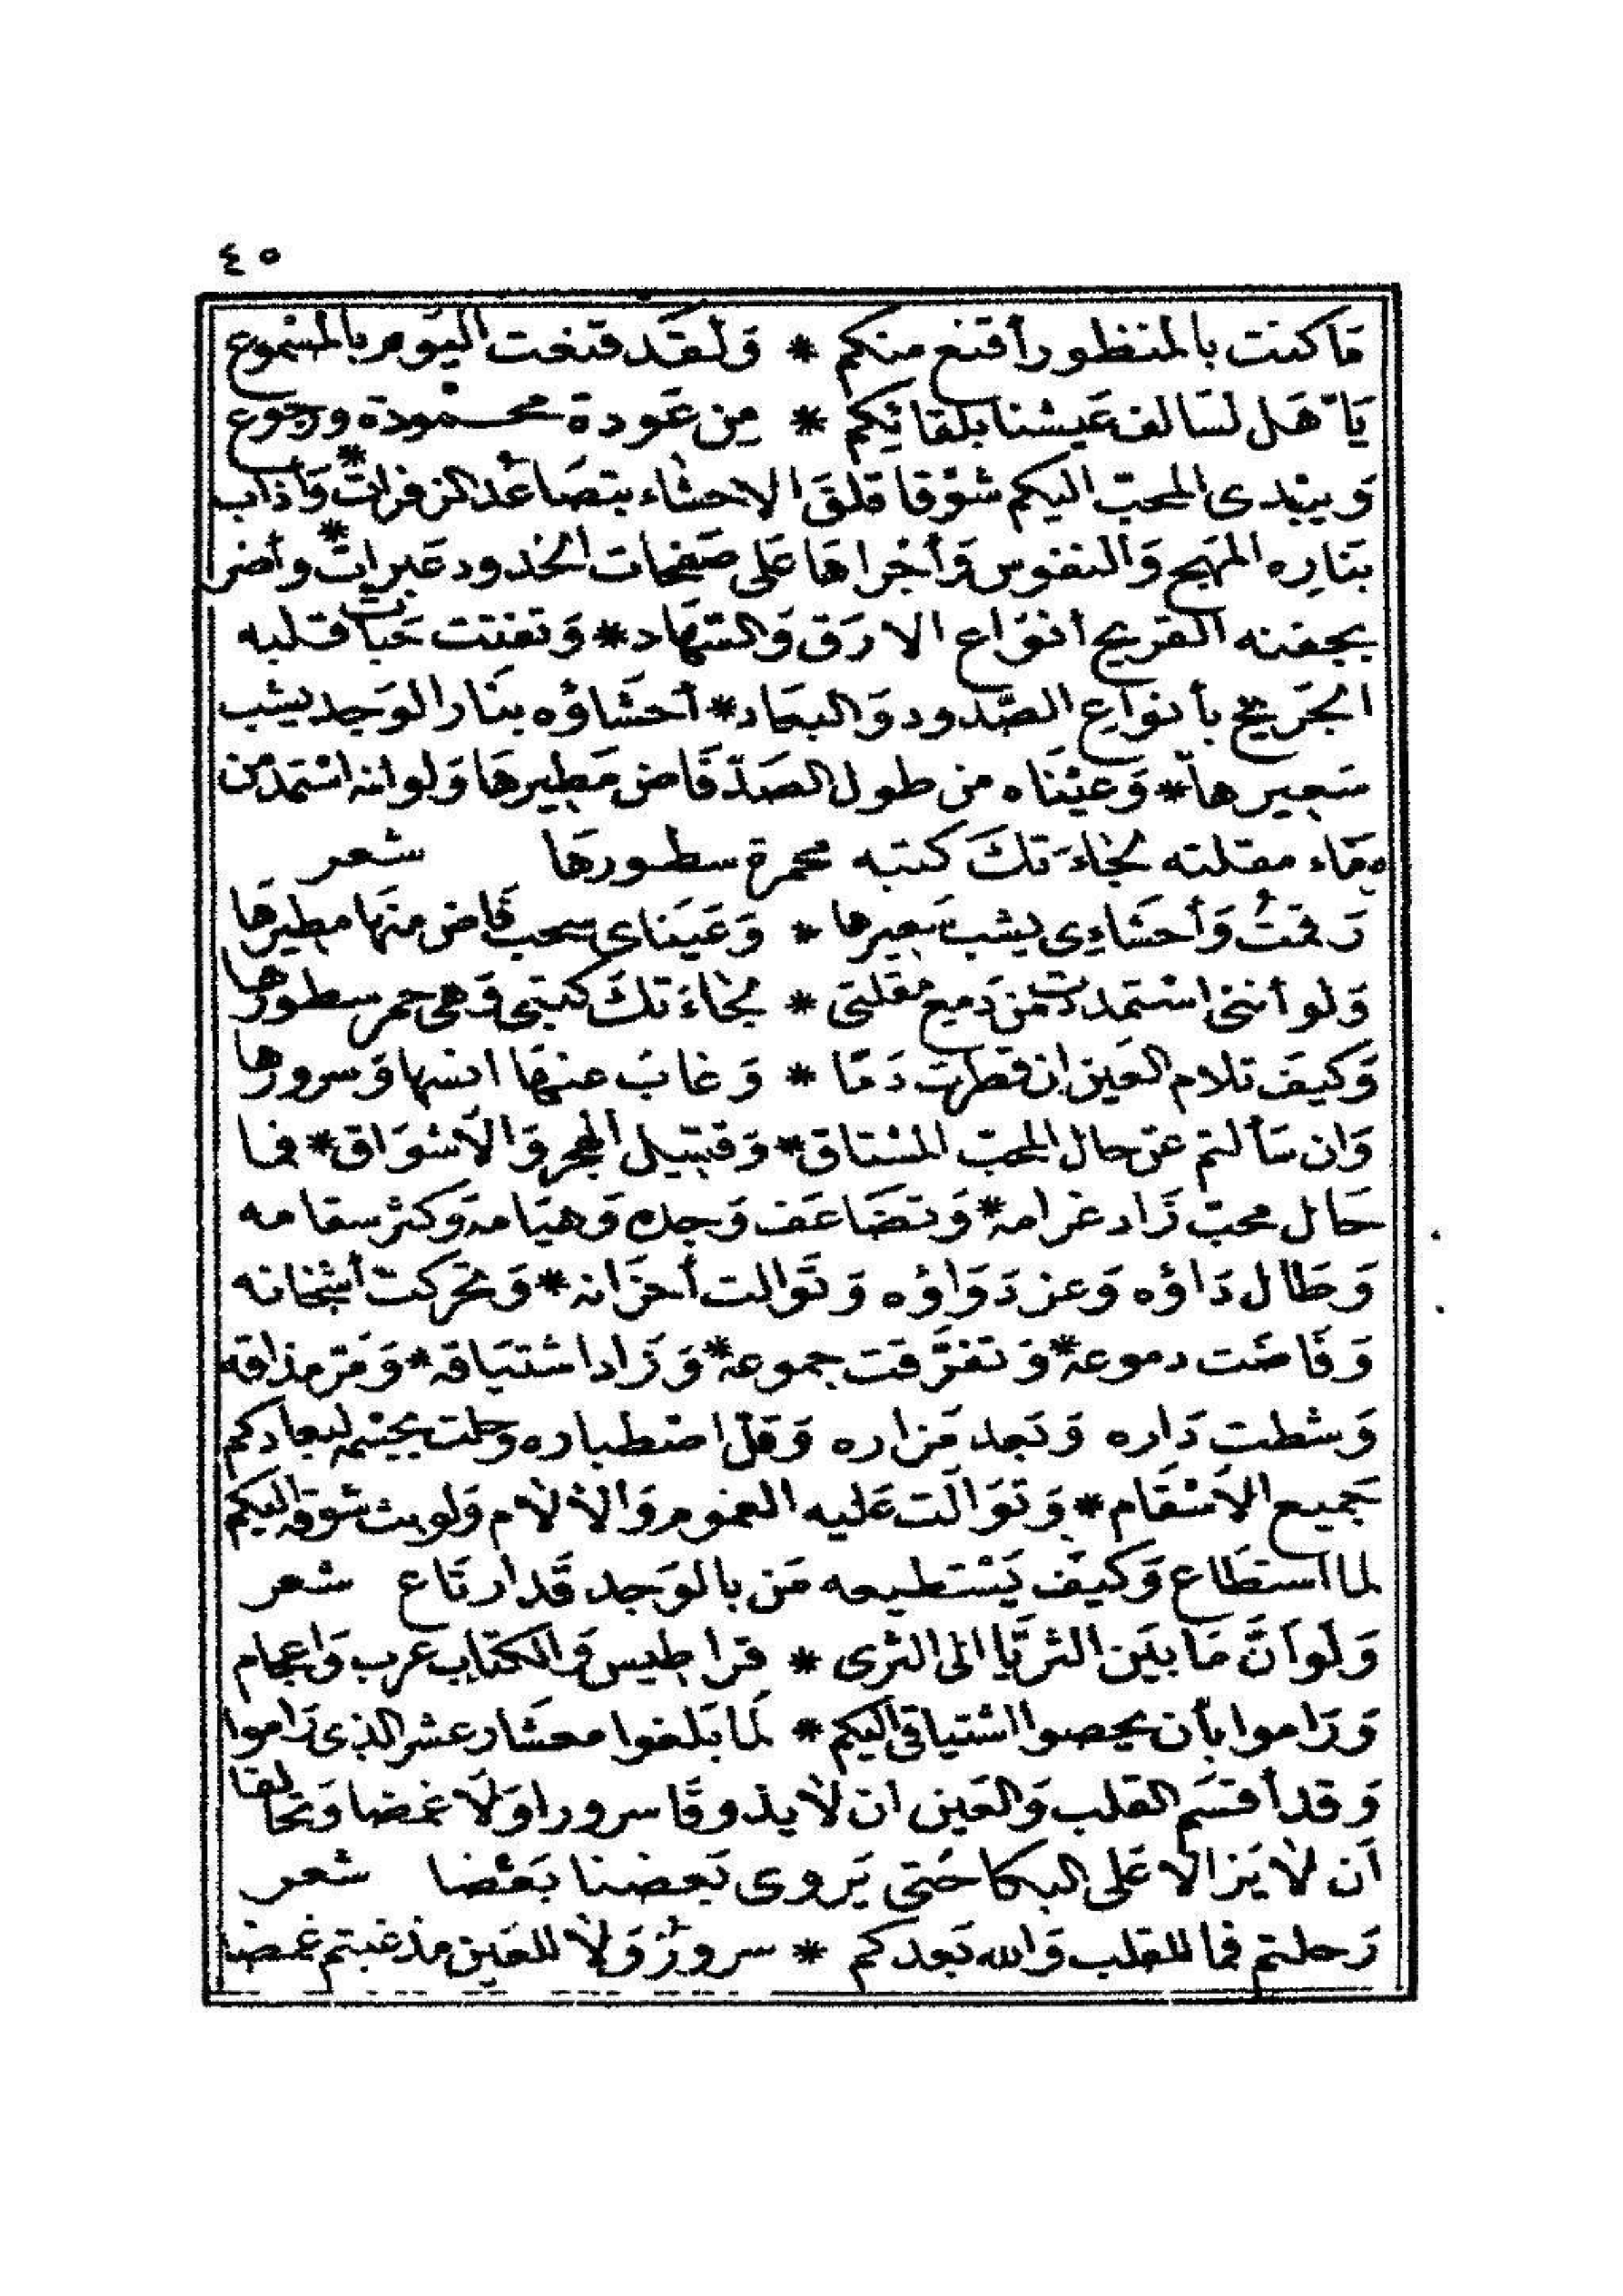 ٤٥
مَا كنت بالمنظور أقنع منكم * وَلَقَد قنعت اليَوم بالمسْموع
يَا هَل لسَالف عَيشنا بلقائِكم * مِن عَودة محمودة ورجوع
وَيبْدى المحبّ اليكم شوْقا قلقَ الاحشاء بتصَاعُد الزفرات * وَأذاب
بنَارِه المهَج وَالنفوس وَأجْراهَا عَلى صَفحَات الخدود عَبرات * وأضر
بجفنه القريح أنوَاع الارَق وَالسّهَاد * وَتفتتت حَبات قلبه
الجَريحْ بأنواع الصّدود وَالبعَاد * أحشَاؤه بنَار الوَجد يشب
سَعيرها * وَعيْنَاه من طول الصَدّ فَاض مَطيرهَا وَلو انه استمد من
دمَاء مقلته لجاءَتكَ كتبه محمرة سطورهَا شعر
رَقمتُ وَأحشَاءِى يشب سَعيرها * وَعَينَاى سحب فَاض منهَا مطيرهَا
وَلو أننى استمددت من دَميع مقلتى * لجاءَتكَ كتبى وَهى حمر سطورهَا
وَكيفَ تلام العَين ان قطرت دَمًا * وَغابَ عنهَا انسها وَسرورهَا
وَان سَألتم عَن حال المحبّ المشتاق * وَقتيل الهجر وَالاَشوَاق * فما
حَال محبّ زَاد غرامه * وَتضَاعَف وَجده وَهيَامه وَكثر سقامه
وَطَال دَاؤه وَعز دَوَاؤه وَتوَالت أحزَانه * وَتحَركت أشجانه
وَفَاضَت دموعه * وَتفرَّقت جموعه * وَزَاد اشتيَاقه * وَمَرّ مذاقه
وَشطت دَاره وَبَعد مَزاره وَقلّ اصْطباره وحلت بجسْمه لبعَادكم
جَميع الاَسْقَام * وَتوَالَت عَليه الغموم وَالاٰلاٰم وَلو بث شوقه اليكم
لما استطَاع وَكيَف يَسْتطيعه مَن بالوَجد قَد ارتَاع شعر
وَلَو اَنَّ مَا بَين الثريَّا الى الثرى * قراطيس وَالكتاب عرب وَاعجام
وَرَاموا بأن يحصوا اشتياقى اليكم * لمَا بَلغوا معشَار عشر الذى رَاموا
وَقد أقسَم القلب وَالعَين ان لاَ يذوقَا سرورا وَلَا غمضا وَتحَالفا
اَن لاَ يَزالا عَلى البكا حَتى يَروى بَعضنا بَعْضا شعر
رَحلتم فما للقلب وَالله بَعدكم * سرورٌ وَلاَ للعَين مذ غبتم غمضا